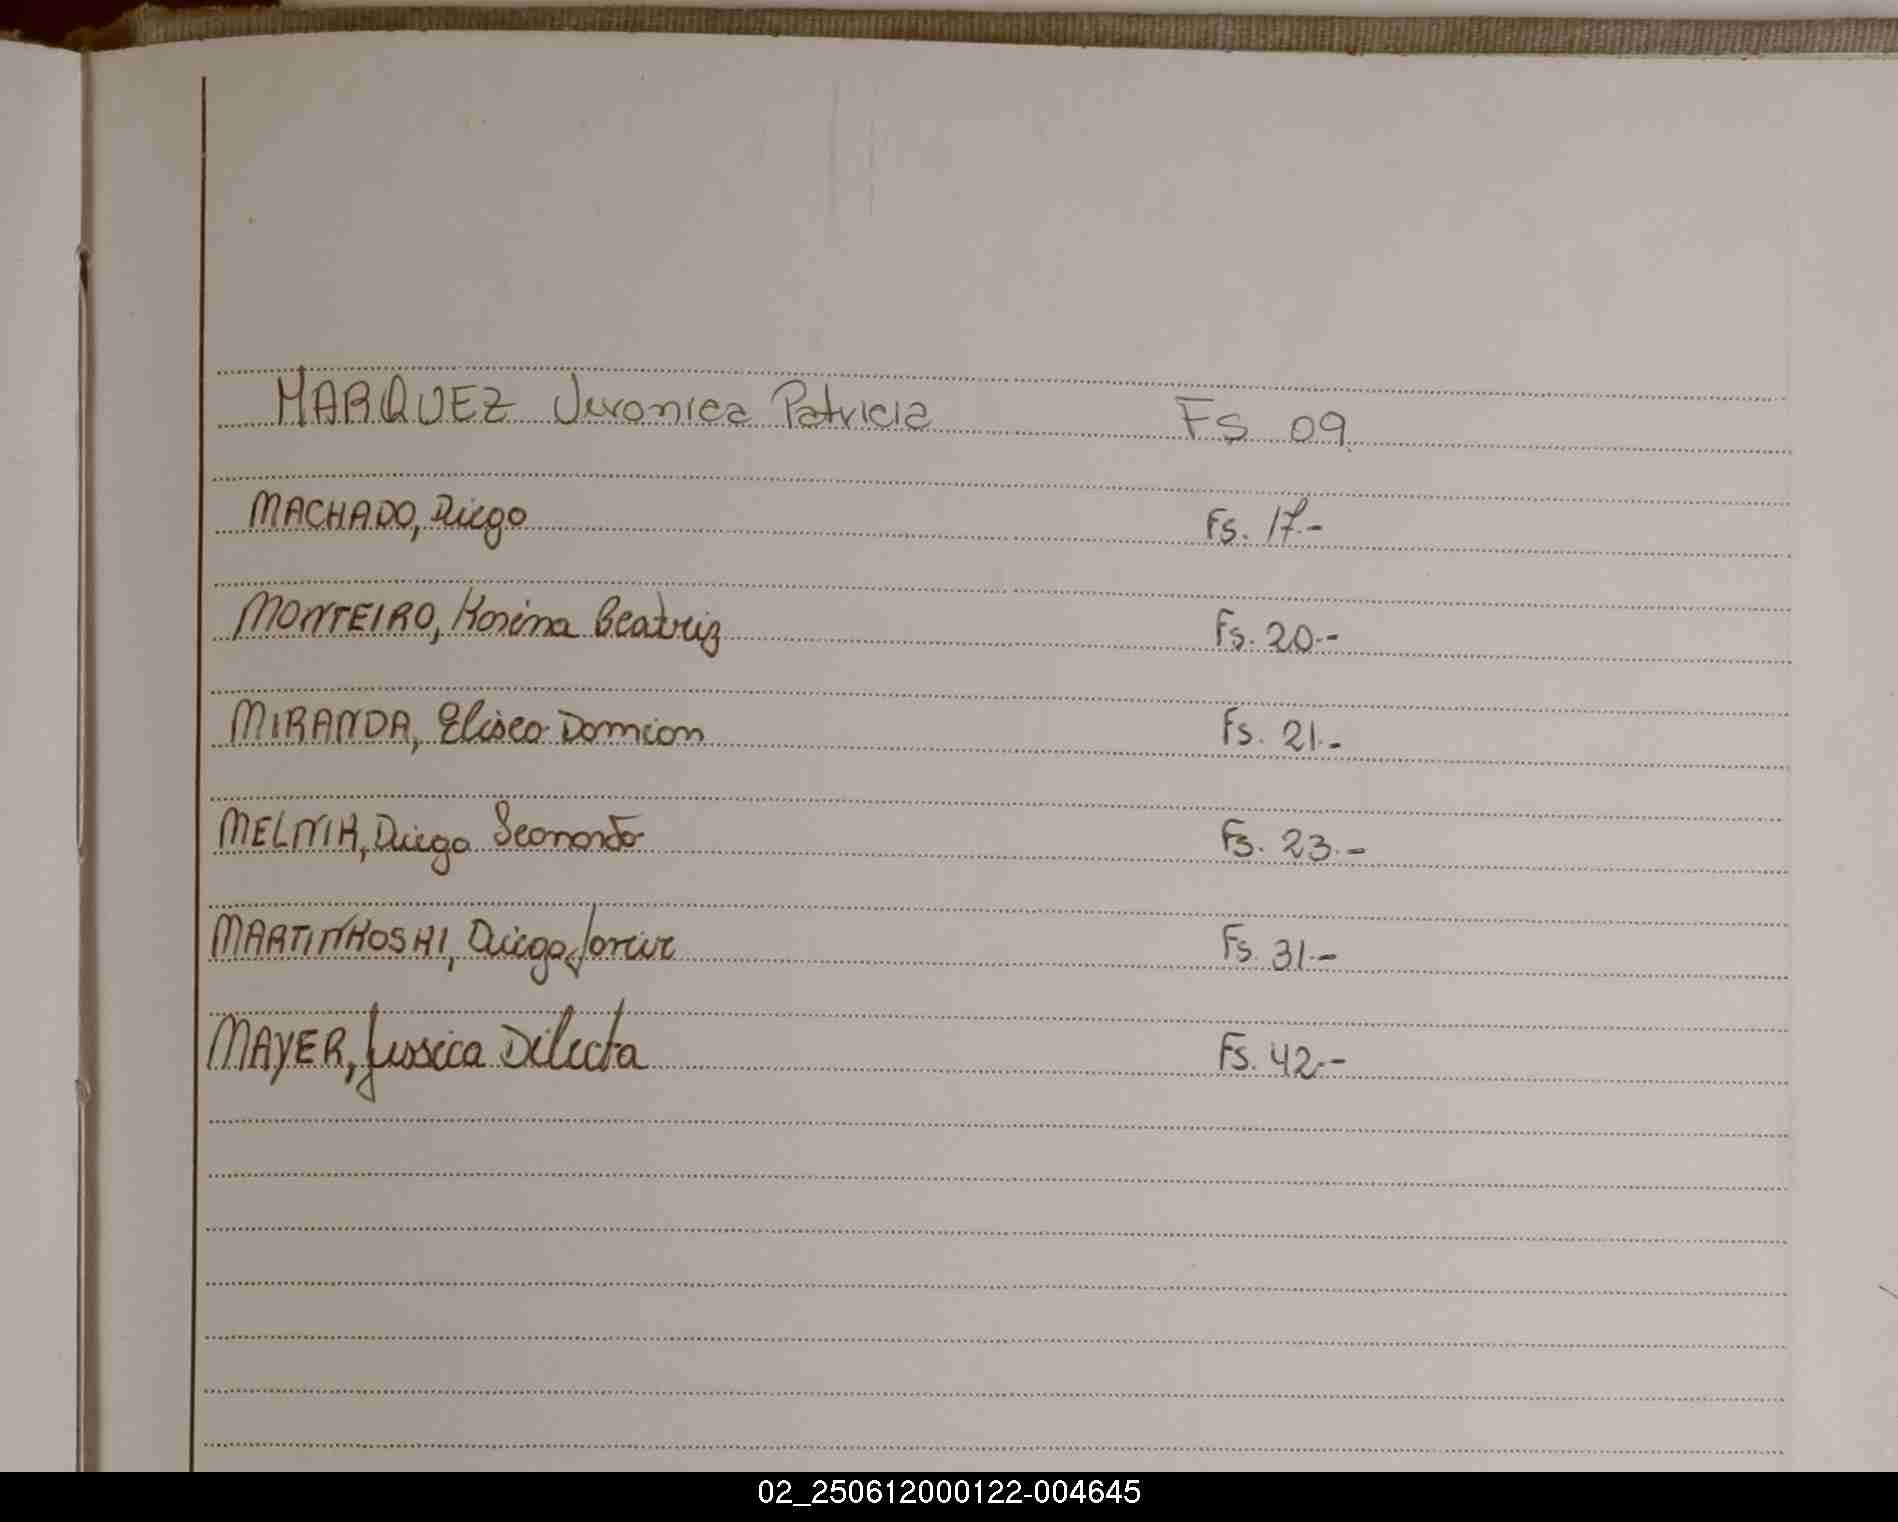 MARQUEZ Veronica Patricia Fs 09.
MACHADO, Diego Fs. 17.-
MONTEIRO, Karina Beatriz Fs. 20.-
MIRANDA, Eliseo Damian Fs. 21.-
MELNIK, Diego Leonardo Fs. 23.-
MARTINKOSKI, Diego Javier Fs. 31.-
MAYER, Jessica Dilecta Fs. 42.-
02_250612000122-004645